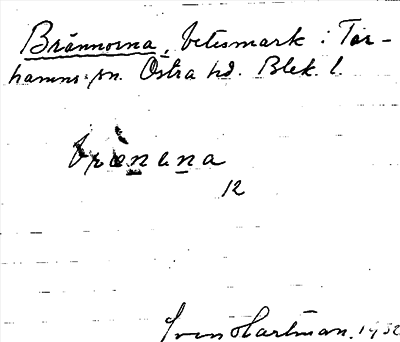 Brännorna, betesmark i Tor-
hamns sn. Östra hd. Blek. l.
brænena
12
Sven Hartman, 1932